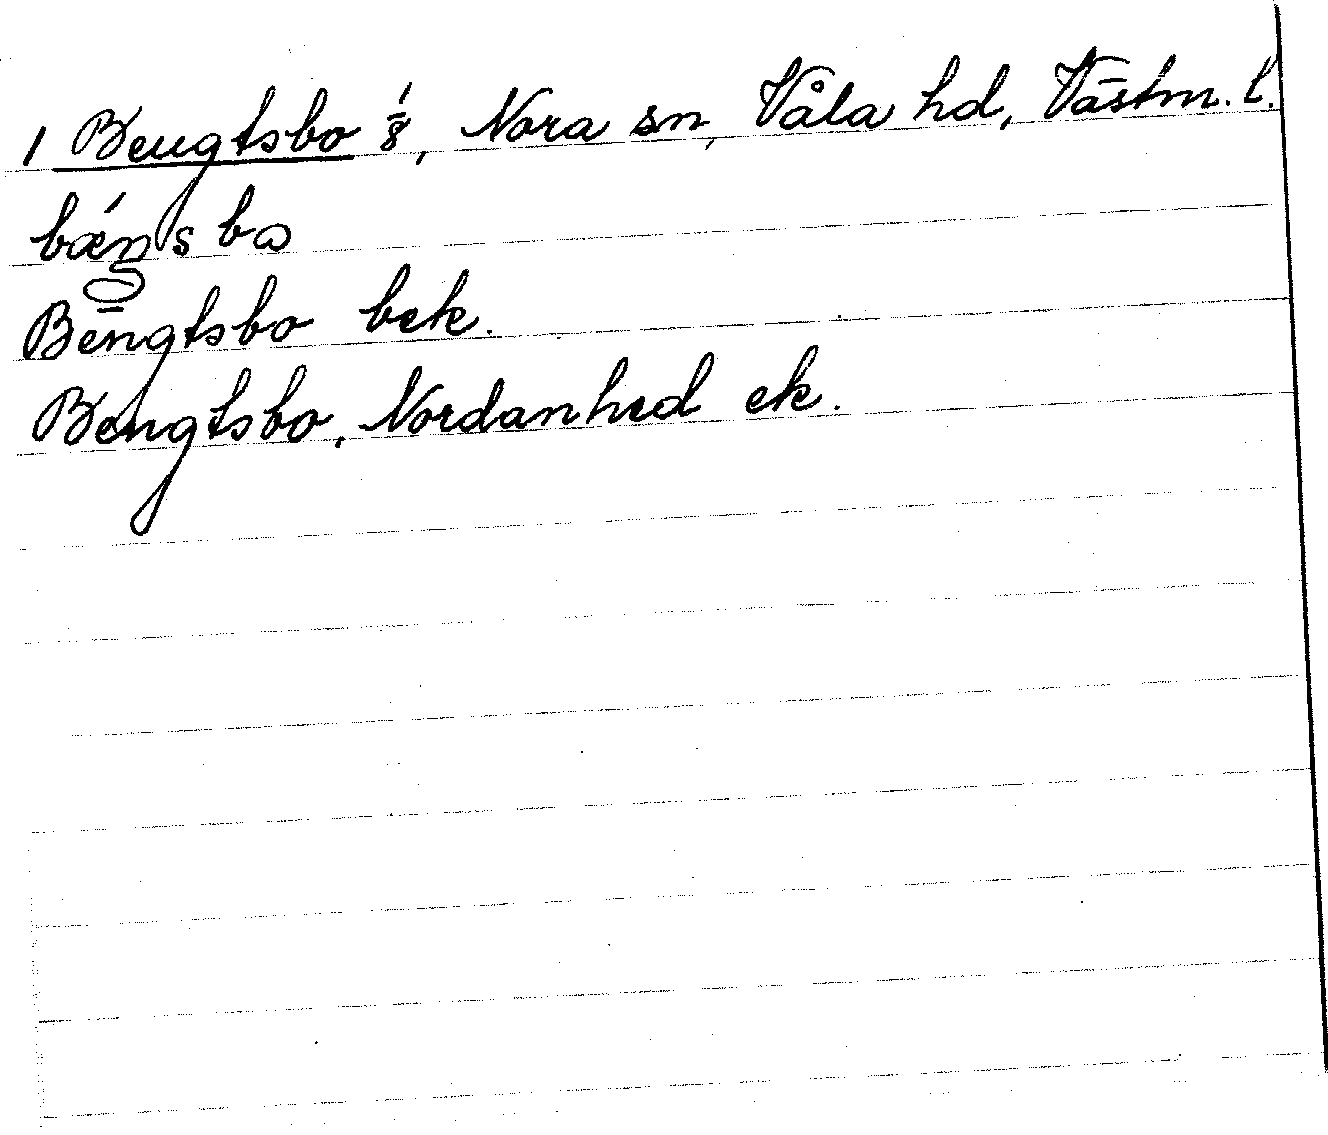 1 Bengtsbo 1/8, Nora sn, Våla hd, Västm. l.
bǽŋsbɷ
Bengtsbo bek.
Bengtsbo, Nordanhed ek.